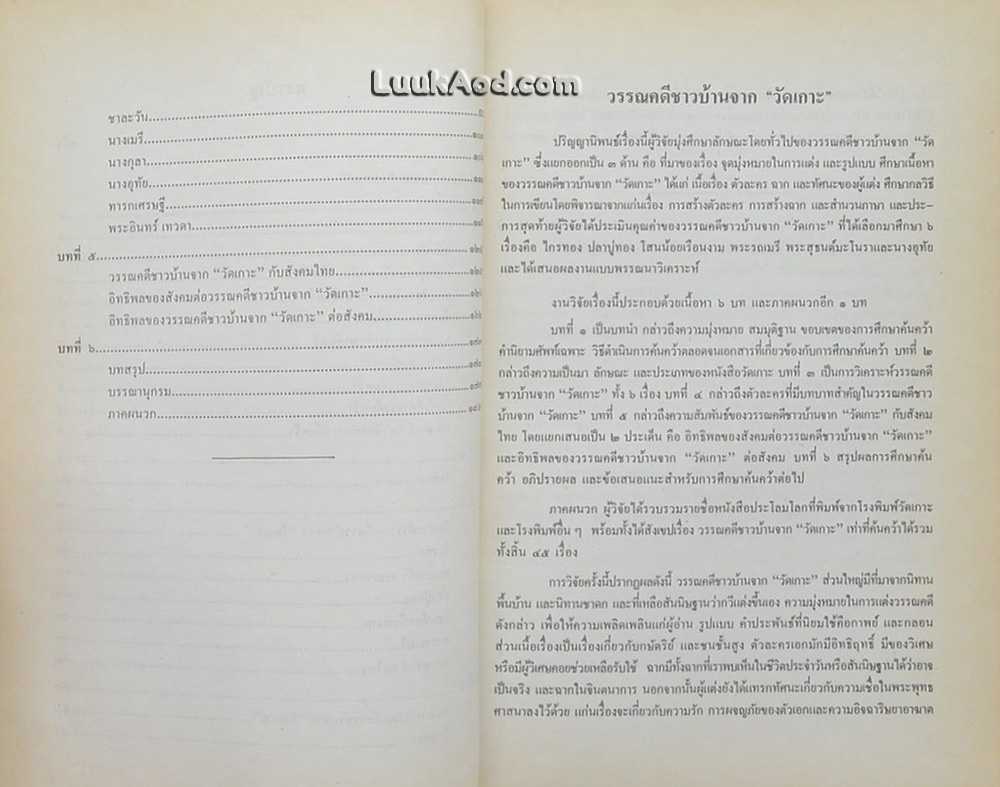 LuukAod.com
ชาละวัน
นางเมรี
นางกุลา
นางอุทัย
ทารกเศรษฐี
พระอินทร์ เทวดา
บทที่ ๕
วรรณคดีชาวบ้านจาก “วัดเกาะ” กับสังคมไทย
อิทธิพลของสังคมต่อวรรณคดีชาวบ้านจาก “วัดเกาะ”
อิทธิพลของวรรณคดีชาวบ้านจาก “วัดเกาะ” ต่อสังคม
บทที่ ๖
บทสรุป
บรรณานุกรม
ภาคผนวก
วรรณคดีชาวบ้านจาก “วัดเกาะ”
ปริญญานิพนธ์เรื่องนี้ผู้วิจัยมุ่งศึกษาลักษณะโดยทั่วไปของวรรณคดีชาวบ้านจาก “วัด
เกาะ” ซึ่งแยกออกเป็น ๓ ด้าน คือ ที่มาของเรื่อง จุดมุ่งหมายในการแต่ง และรูปแบบ ศึกษาเนื้อหา
ของวรรณคดีชาวบ้านจาก “วัดเกาะ” ได้แก่ เนื้อเรื่อง ตัวละคร ฉาก และทัศนะของผู้แต่ง ศึกษากลวิธี
ในการเขียนโดยพิจารณาจากแก่นเรื่อง การสร้างตัวละคร การสร้างฉาก และสำนวนภาษา และประ–
การสุดท้ายผู้วิจัยได้ประเมินคุณค่าของวรรณคดีชาวบ้านจาก “วัดเกาะ” ที่ได้เลือกมาศึกษา ๖
เรื่องคือ ไกรทอง ปลาบู่ทอง โสนน้อยเรือนงาม พระรถเมรี พระสุธนต์มะโนราและนางอุทัย
และได้เสนอผลงานแบบพรรณนาวิเคราะห์
งานวิจัยเรื่องนี้ประกอบด้วยเนื้อหา ๖ บท และภาคผนวกอีก ๑ บท
บทที่ ๑ เป็นบทนำ กล่าวถึงความมุ่งหมาย สมมุติฐาน ขอบเขตของการศึกษาค้นคว้า
คำนิยามศัพท์เฉพาะ วิธีดำเนินการค้นคว้าตลอดจนเอกสารที่เกี่ยวข้องกับการศึกษาค้นคว้า บทที่ ๒
กล่าวถึงความเป็นมา ลักษณะ และประเภทของหนังสือวัดเกาะ บทที่ ๓ เป็นการวิเคราะห์วรรณคดี
ชาวบ้านจาก “วัดเกาะ” ทั้ง ๖ เรื่อง บทที่ ๔ กล่าวถึงตัวละครที่มีบทบาทสำคัญในวรรณคดีชาว
บ้านจาก “วัดเกาะ” บทที่ ๕ กล่าวถึงความสัมพันธ์ของวรรณคดีชาวบ้านจาก “วัดเกาะ” กับสังคม
ไทย โดยแยกเสนอเป็น ๒ ประเด็น คือ อิทธิพลของสังคมต่อวรรณคดีชาวบ้านจาก “วัดเกาะ”
และอิทธิพลของวรรณคดีชาวบ้านจาก “วัดเกาะ” ต่อสังคม บทที่ ๖ สรุปผลการศึกษาค้น
คว้า อภิปรายผล และข้อเสนอแนะสำหรับการศึกษาค้นคว้าต่อไป
ภาคผนวก ผู้วิจัยได้รวบรวมรายชื่อหนังสือประโลมโลกที่พิมพ์จากโรงพิมพ์วัดเกาะ
และโรงพิมพ์อื่น ๆ พร้อมทั้งได้สังเขปเรื่อง วรรณคดีชาวบ้านจาก “วัดเกาะ” เท่าที่ค้นคว้าได้รวม
ทั้งสิ้น ๔๕ เรื่อง
การวิจัยครั้งนี้ปรากฏผลดังนี้ วรรณคดีชาวบ้านจาก “วัดเกาะ” ส่วนใหญ่มีที่มาจากนิทาน
พื้นบ้าน และนิทานชาดก และที่เหลือสันนิษฐานว่ากวีแต่งขึ้นเอง ความมุ่งหมายในการแต่งวรรณคดี
ดังกล่าว เพื่อให้ความเพลิดเพลินแก่ผู้อ่าน รูปแบบ คำประพันธ์ที่นิยมใช้คือกาพย์ และกลอน
ส่วนเนื้อเรื่องเป็นเรื่องเกี่ยวกับกษัตริย์ และชนชั้นสูง ตัวละครเอกมักมีอิทธิฤทธิ์ มีของวิเศษ
หรือมีผู้วิเศษคอยช่วยเหลือรับใช้ ฉากมีทั้งฉากที่เราพบเห็นในชีวิตประจำวันหรือสันนิษฐานได้ว่าอาจ
เป็นจริง และฉากในจินตนาการ นอกจากนั้นผู้แต่งยังได้แทรกทัศนะเกี่ยวกับความเชื่อในพระพุทธ
ศาสนาลงไว้ด้วย แก่นเรื่องจะเกี่ยวกับความรัก การผจญภัยของตัวเอกและความอิจฉาริษยาอาฆาต